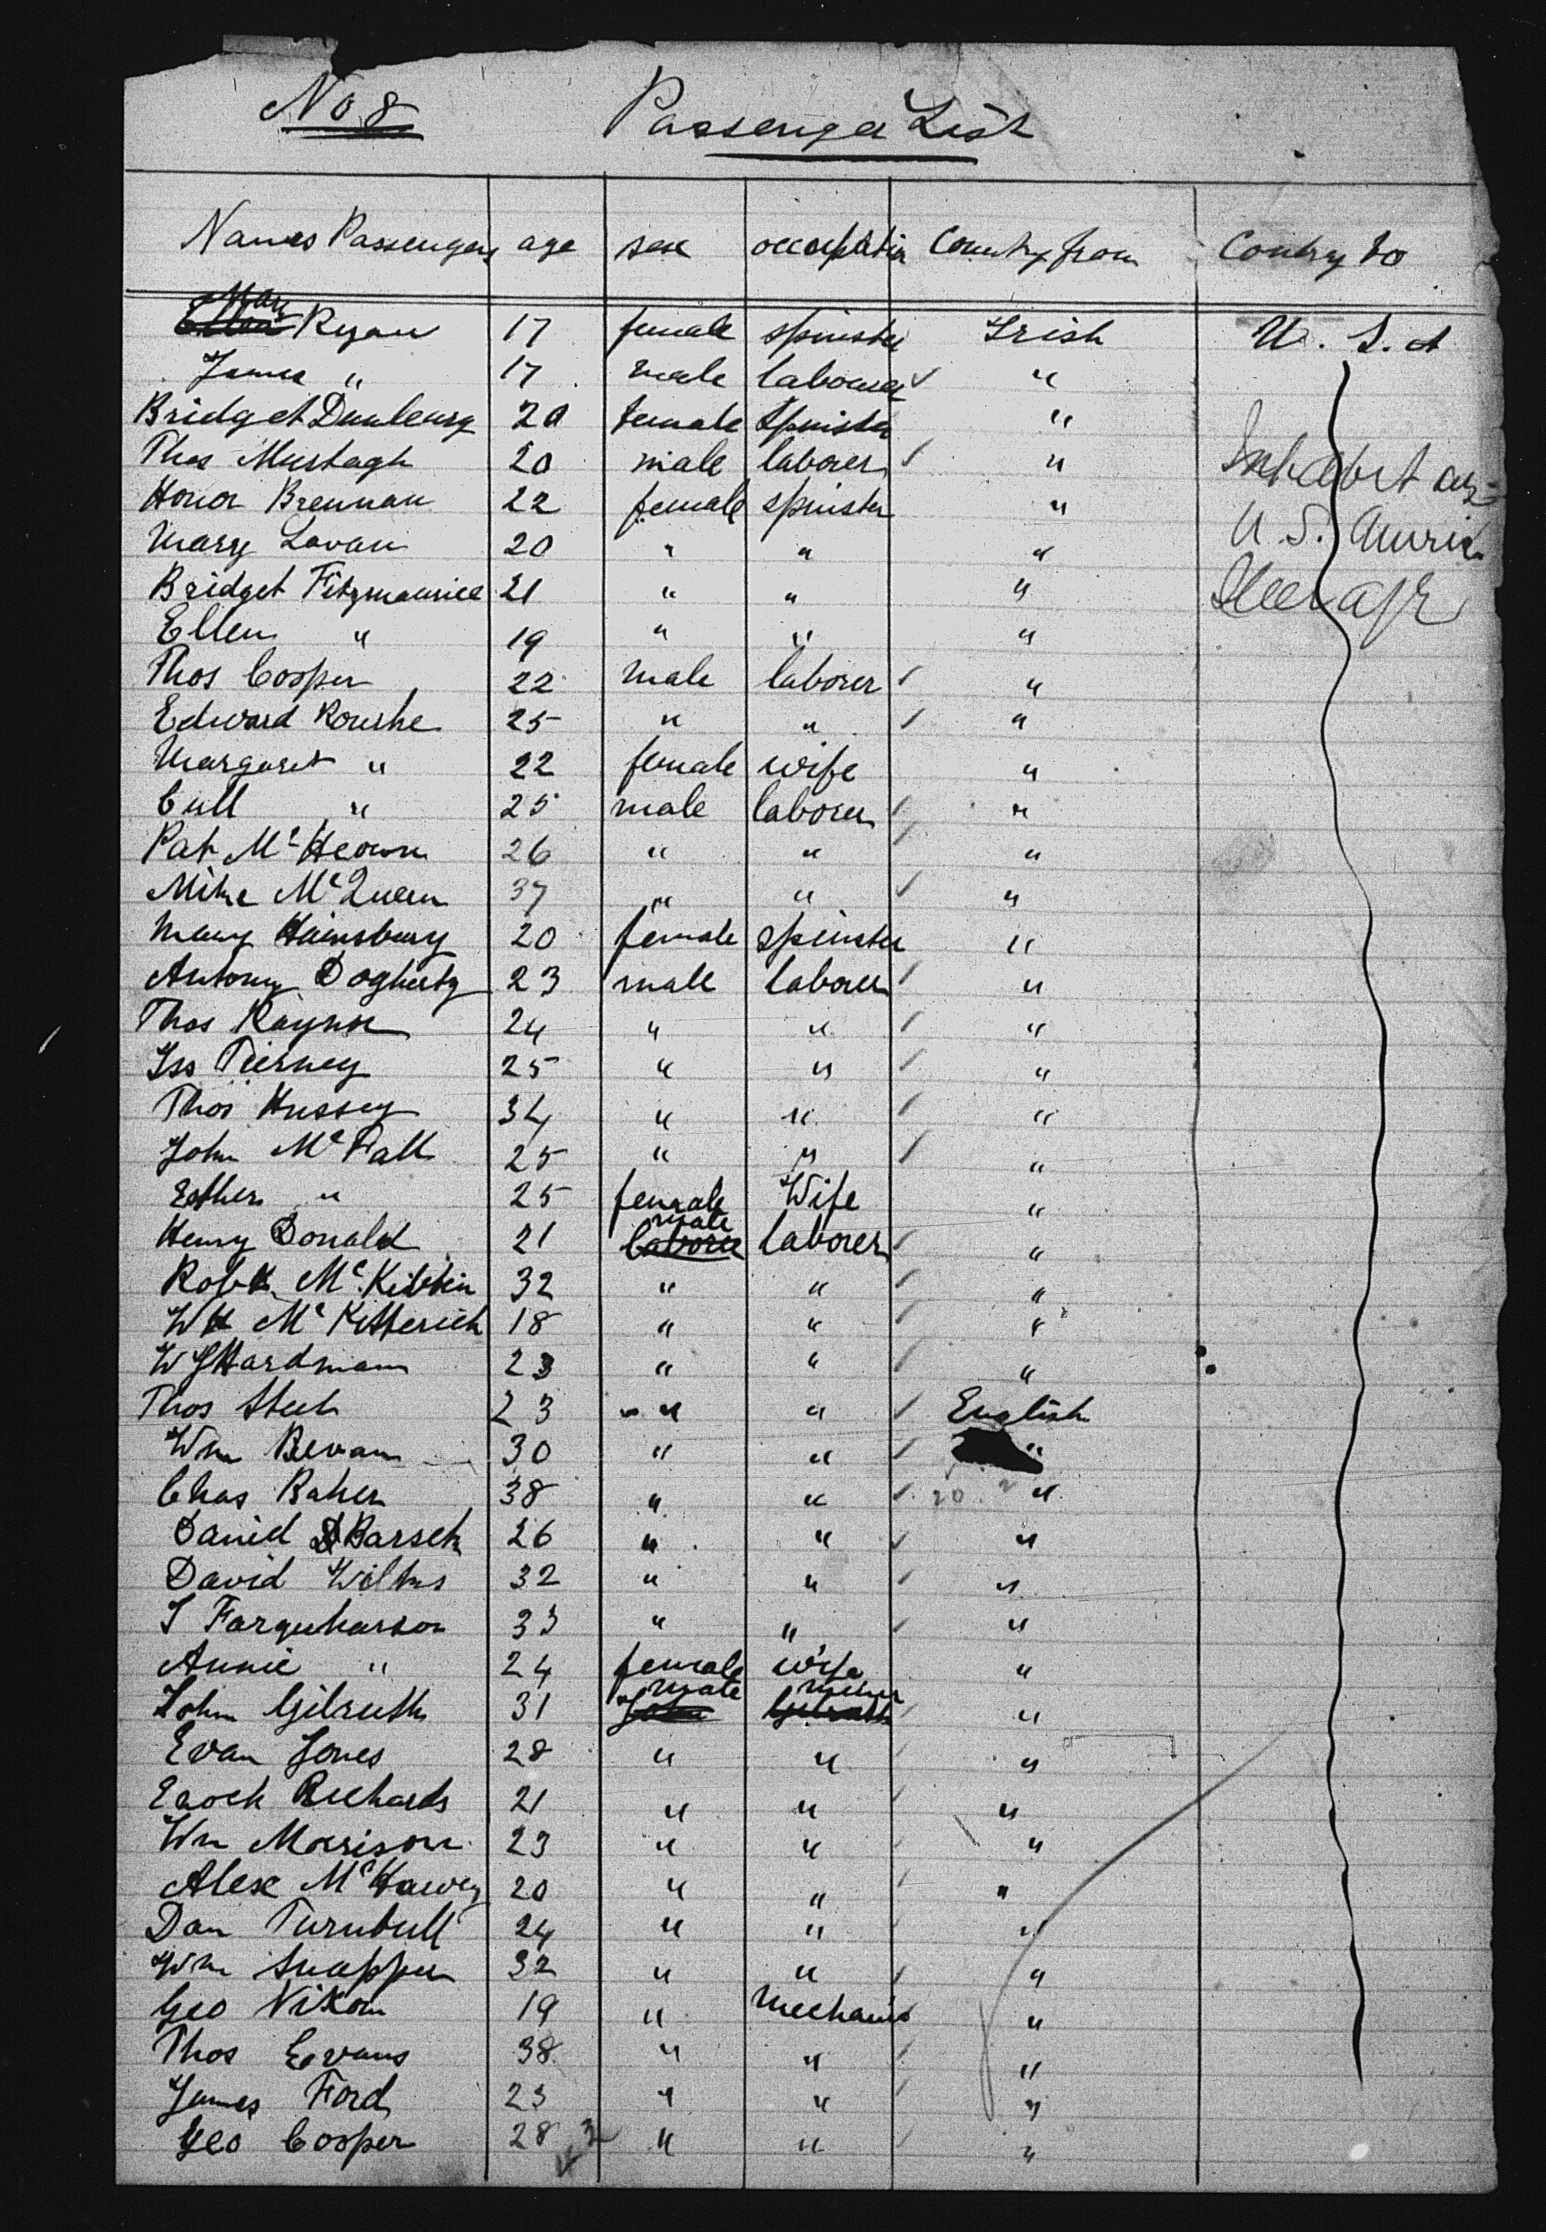 No 8 Passenger List
Names Passengers age sex occupation Country from Contry to
Mary Ryan 17 female spinster Irish U. S. A
James " 17 male labourer "
Bridget 20 female spinster "
Thos Murtagh 20 male laborer "
Honor Brennan 22 female spinster " Inhabit
Mary Lavan 20 " " " U. S.
Bridget Fitzmaurice 21 " " "
Ellen " 19 " " "
Thos Cooper 22 male laborer "
Edward Rourke 25 " " "
Margaret " 22 female wife "
" 25 male laborer "
Pat McKeown 26 " " "
Mike McQueen 37 " " "
Mary Hainsbury 20 female spinster "
Antony Dogherty 23 male laborer "
Thos Raynor 24 " " "
Jss Tierney 25 " " "
Thos Hussey 34 " " "
John McFall 25 " " "
Esther " 25 female Wife "
Henry Donald 21 male laborer "
Robt McKibbin 32 " " "
McKitterick 18 " " "
Hardman 23 " " "
Thos 23 " " English
Wm Bevan 30 " " "
Chas Baker 38 " " 20 "
David 26 " " "
David 32 " " "
J Farquharson 33 " " "
Annie " 24 female wife "
John Gilruth 31 male miner "
Evan Jones 28 " " "
Enock Richards 21 " " "
Wm Morrison 23 " " "
Alex 20 " " "
Dan Turnbull 24 " " "
Wm 32 " " "
Geo Nixon 19 " Mechanic "
Thos Evans 38 " " "
James Ford 23 " " "
Geo Cooper 28 " " "